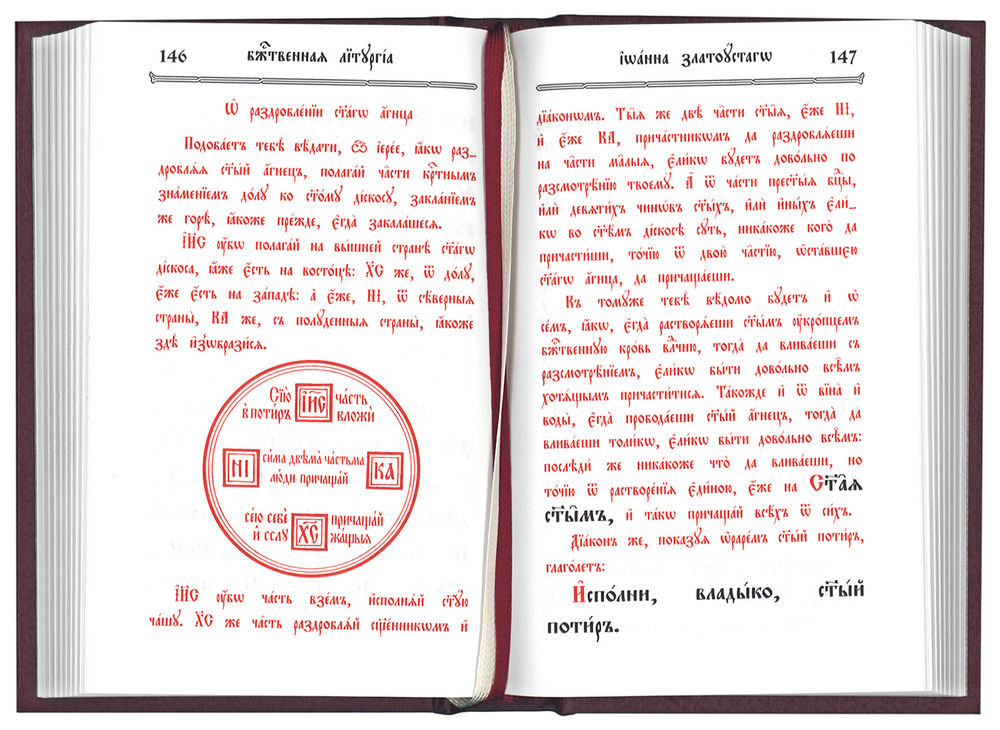 146 бж҃твенная лїтургі́а
Ѽ раздробле́нїи ст҃а́гѡ а҆́гнца
Подоба́етъ тебѣ̀ вѣ́дати, ѽ і҆ере́е, ꙗ҆́кѡ раз_
дробла́ѧ ст҃ы́й а҆́гнецъ, полага́й ча̑сти крⷭ҇тнымъ
зна́менїемъ до́лу ко ст҃о́му ді́скосу, закла́нїемъ
же горѣ̀, ꙗ҆́коже пре́жде, є҆гда̀ закала́шесѧ.
І҆И҃С ᲂу҆̀бѡ полага́й на вы́шней странѣ̀ ст҃а́гѡ
ді́скоса, ꙗ҆́же є҆́сть на восто́цѣ: Х҃С же, ѿ до́лу,
є҆́же є҆́сть на за́падѣ: а҆ є҆́же, НІ, ѿ сѣ́верныѧ
страны̀, КА же, съ полу́денныѧ страны̀, ꙗ҆́коже
здѣ̀ и҆з̾ѡбрази́сѧ.
Сїю̀ І҆И҃С ча́сть
в̾ поти́ръ вложѝ
НІ си́ма двѣма̀ ча́стьма КА
лю́ди причаща́й
се́ю себѐ Х҃С причаща́й
и҆ сслꙋ̀ жа́щыѧ
І҆И҃С ᲂу҆̀бѡ ча́сть взе́мъ, и҆сполнѧ́й ст҃у́ю
ча́шу. Х҃С же ча́сть раздробла́й сщ҃е́нникѡмъ и҆
і҆ѡа́нна златоу́стагѡ 147
дїа́конѡмъ. Ты̑ѧ же двѣ̀ ча̑сти ст҃ы̑ѧ, є҆́же НІ,
и҆ є҆́же КА, прича́стникѡмъ да раздроблѧ́еши
на ча̑сти ма̑лыѧ, є҆ли́кѡ бу́детъ дово́льно по
разсмотре́нїю твоему̀. А҆ ѿ ча́сти прест҃ы́ѧ бц҃ы,
и҆лѝ девѧти́хъ чинѡ́въ ст҃ы́хъ, и҆лѝ и҆́ныхъ є҆ли́_
кѡ во ст҃ѣ́мъ ді́скосѣ су́ть, ника́коже кого̀ да
причасти́ши, то́чїю ѿ двою̀ ча́стїю, ѡ҆ста́вшею
ст҃а́гѡ а҆́гнца, да причаща́еши.
Къ тому́же тебѣ̀ вѣ́домо бу́детъ и҆ ѡ҆
се́мъ, ꙗ҆́кѡ, є҆гда̀ растворѧ́еши ст҃ы́мъ ᲂу҆кро́пцемъ
бж҃твенную кро́вь влⷣчню, тогда̀ да влива́еши съ
разсмотре́нїемъ, є҆ли́кѡ бы́ти дово́льно всѣ̑мъ
хотѧ́щымъ причасти́тисѧ. Та́кожде и҆ ѿ вїна̀ и҆
воды̀, є҆гда̀ пробода́еши ст҃ы́й а҆́гнецъ, тогда̀ да
влива́еши толи́кѡ, є҆ли́кѡ бы́ти дово́льно всѣ̑мъ:
послѣди́ же ника́коже что̀ да влива́еши, но
то́чїю ѿ растворе́нїѧ є҆ди́ною, є҆́же на Ст҃а̑ѧ
ст҃ы̑мъ, и҆ та́кѡ причаща́й всѣ́хъ ѿ си́хъ.
Дїа́конъ же, показу́ѧ ѡ҆раре́мъ ст҃ы́й поти́ръ,
глаго́летъ:
И҆спо́лни, влады́ко, ст҃ы́й
поти́ръ.